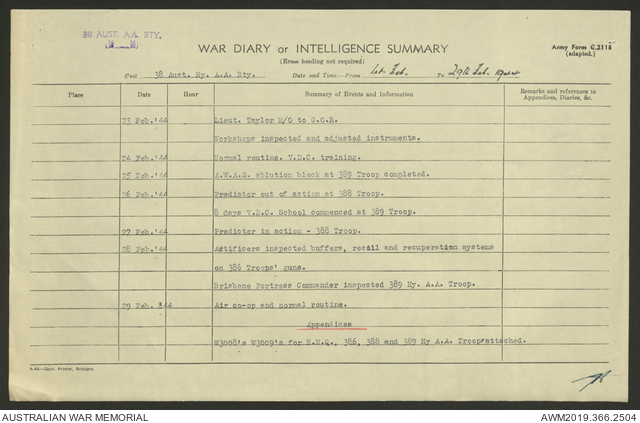 38 AUST. A.A. BTY.
WAR DIARY or INTELLIGENCE SUMMARY
(Erase heading not required)
Army Form C.2118
(adapted.)
Unit 38 Aust. Hy. A.A. Bty. Date and Time—From 1st Feb. To 29th Feb. 1944
Place Date Hour Summary of Events and Information Remarks and references to Appendices, Diaries, &c.
23 Feb.'44 Lieut. Taylor M/O to G.O.R.
Workshops inspected and adjusted instruments.
24 Feb.'44 Normal routine. V.D.C. training.
25 Feb.'44 A.W.A.S. ablution block at 389 Troop completed.
26 Feb.'44 Predictor out of action at 388 Troop.
8 days V.D.C. School commenced at 389 Troop.
27 Feb.'44 Predictor in action - 388 Troop.
28 Feb.'44 Artificers inspected buffers, recoil and recuperation systems
on 386 Troops' guns.
Brisbane Fortress Commander inspected 389 Hy. A.A. Troop.
29 Feb. '44 Air co-op and normal routine.
Appendices
W3008's W3009's for B.H.Q., 386, 388 and 389 Hy A.A. Troop attached.
Govt. Printer, Brisbane
AUSTRALIAN WAR MEMORIAL
AWM2019.366.2504